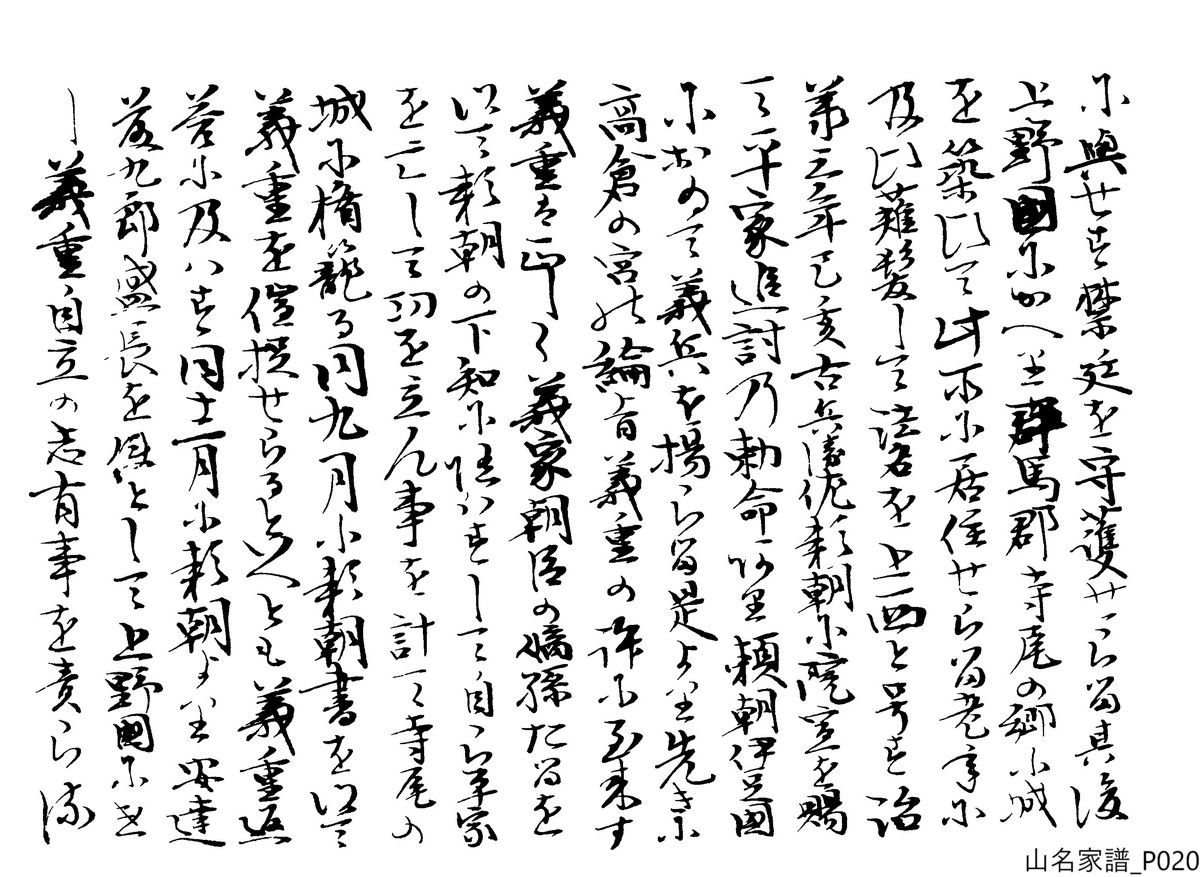 に与せす禁廷を守護せらる其後
上野国にかへり群馬郡寺尾の郷に城
を築ひて此所に居住せらる老年に
及ひ薙髪して法名を上西と号す治
承三年己亥右兵衛佐頼朝に院宣を賜
て平家追討乃勅命あり頼朝伊豆国
におゐて義兵を揚らる是より先きに
高倉の宮の綸旨義重の許に到来す
義重は正しく義家朝臣の嫡孫たるを
以て頼朝の下知に随はすして自ら平家
を亡して功を立ん事を計て寺尾の
城に楯籠る同九月に頼朝書を以て
義重を催促せらるといへとも義重返
答に及はす同十二月に頼朝より安達
藤九郎盛長を使として上野国につかは
し義重自立の志有事を責らる